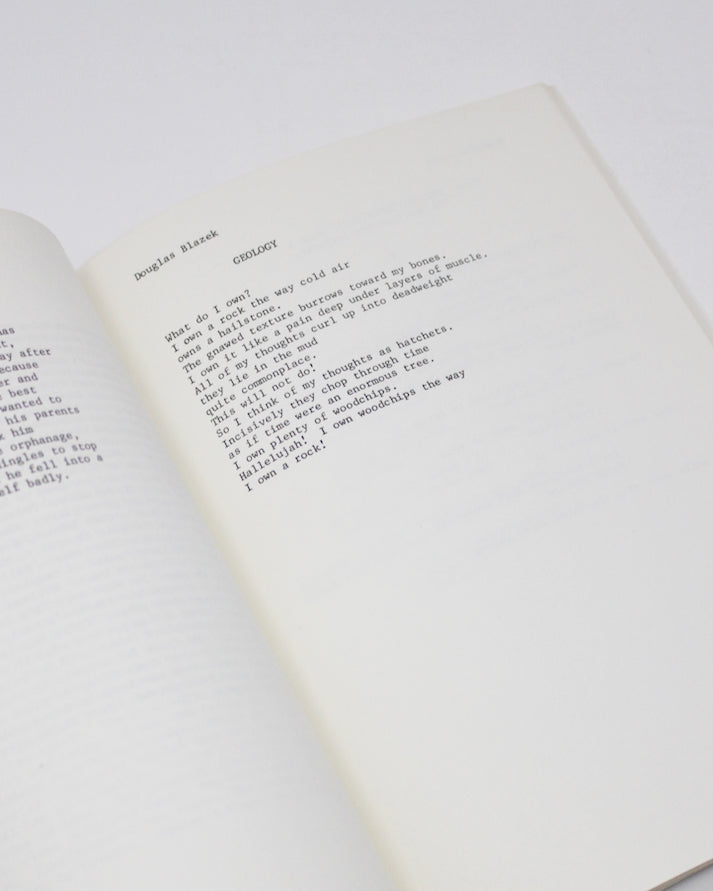 as
t,
ay after
ecause
er and
best
wanted to
his parents
k him
e orphanage,
ingles to stop
he fell into a
elf badly.
Douglas Blazek
GEOLOGY
What do I own?
I own a rock the way cold air
owns a hailstone.
The gnawed texture burrows toward my bones.
I own it like a pain deep under layers of muscle.
All of my thoughts curl up into deadweight
they lie in the mud
quite commonplace.
This will not do!
So I think of my thoughts as hatchets.
Incisively they chop through time
as if time were an enormous tree.
I own plenty of woodchips.
Hallelujah! I own woodchips the way
I own a rock!